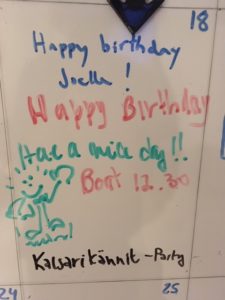 18
Happy birthday
Joella !
Happy Birthday
Have a nice day !!
Boat 12.30
Kalsarikännit - Party
24
25